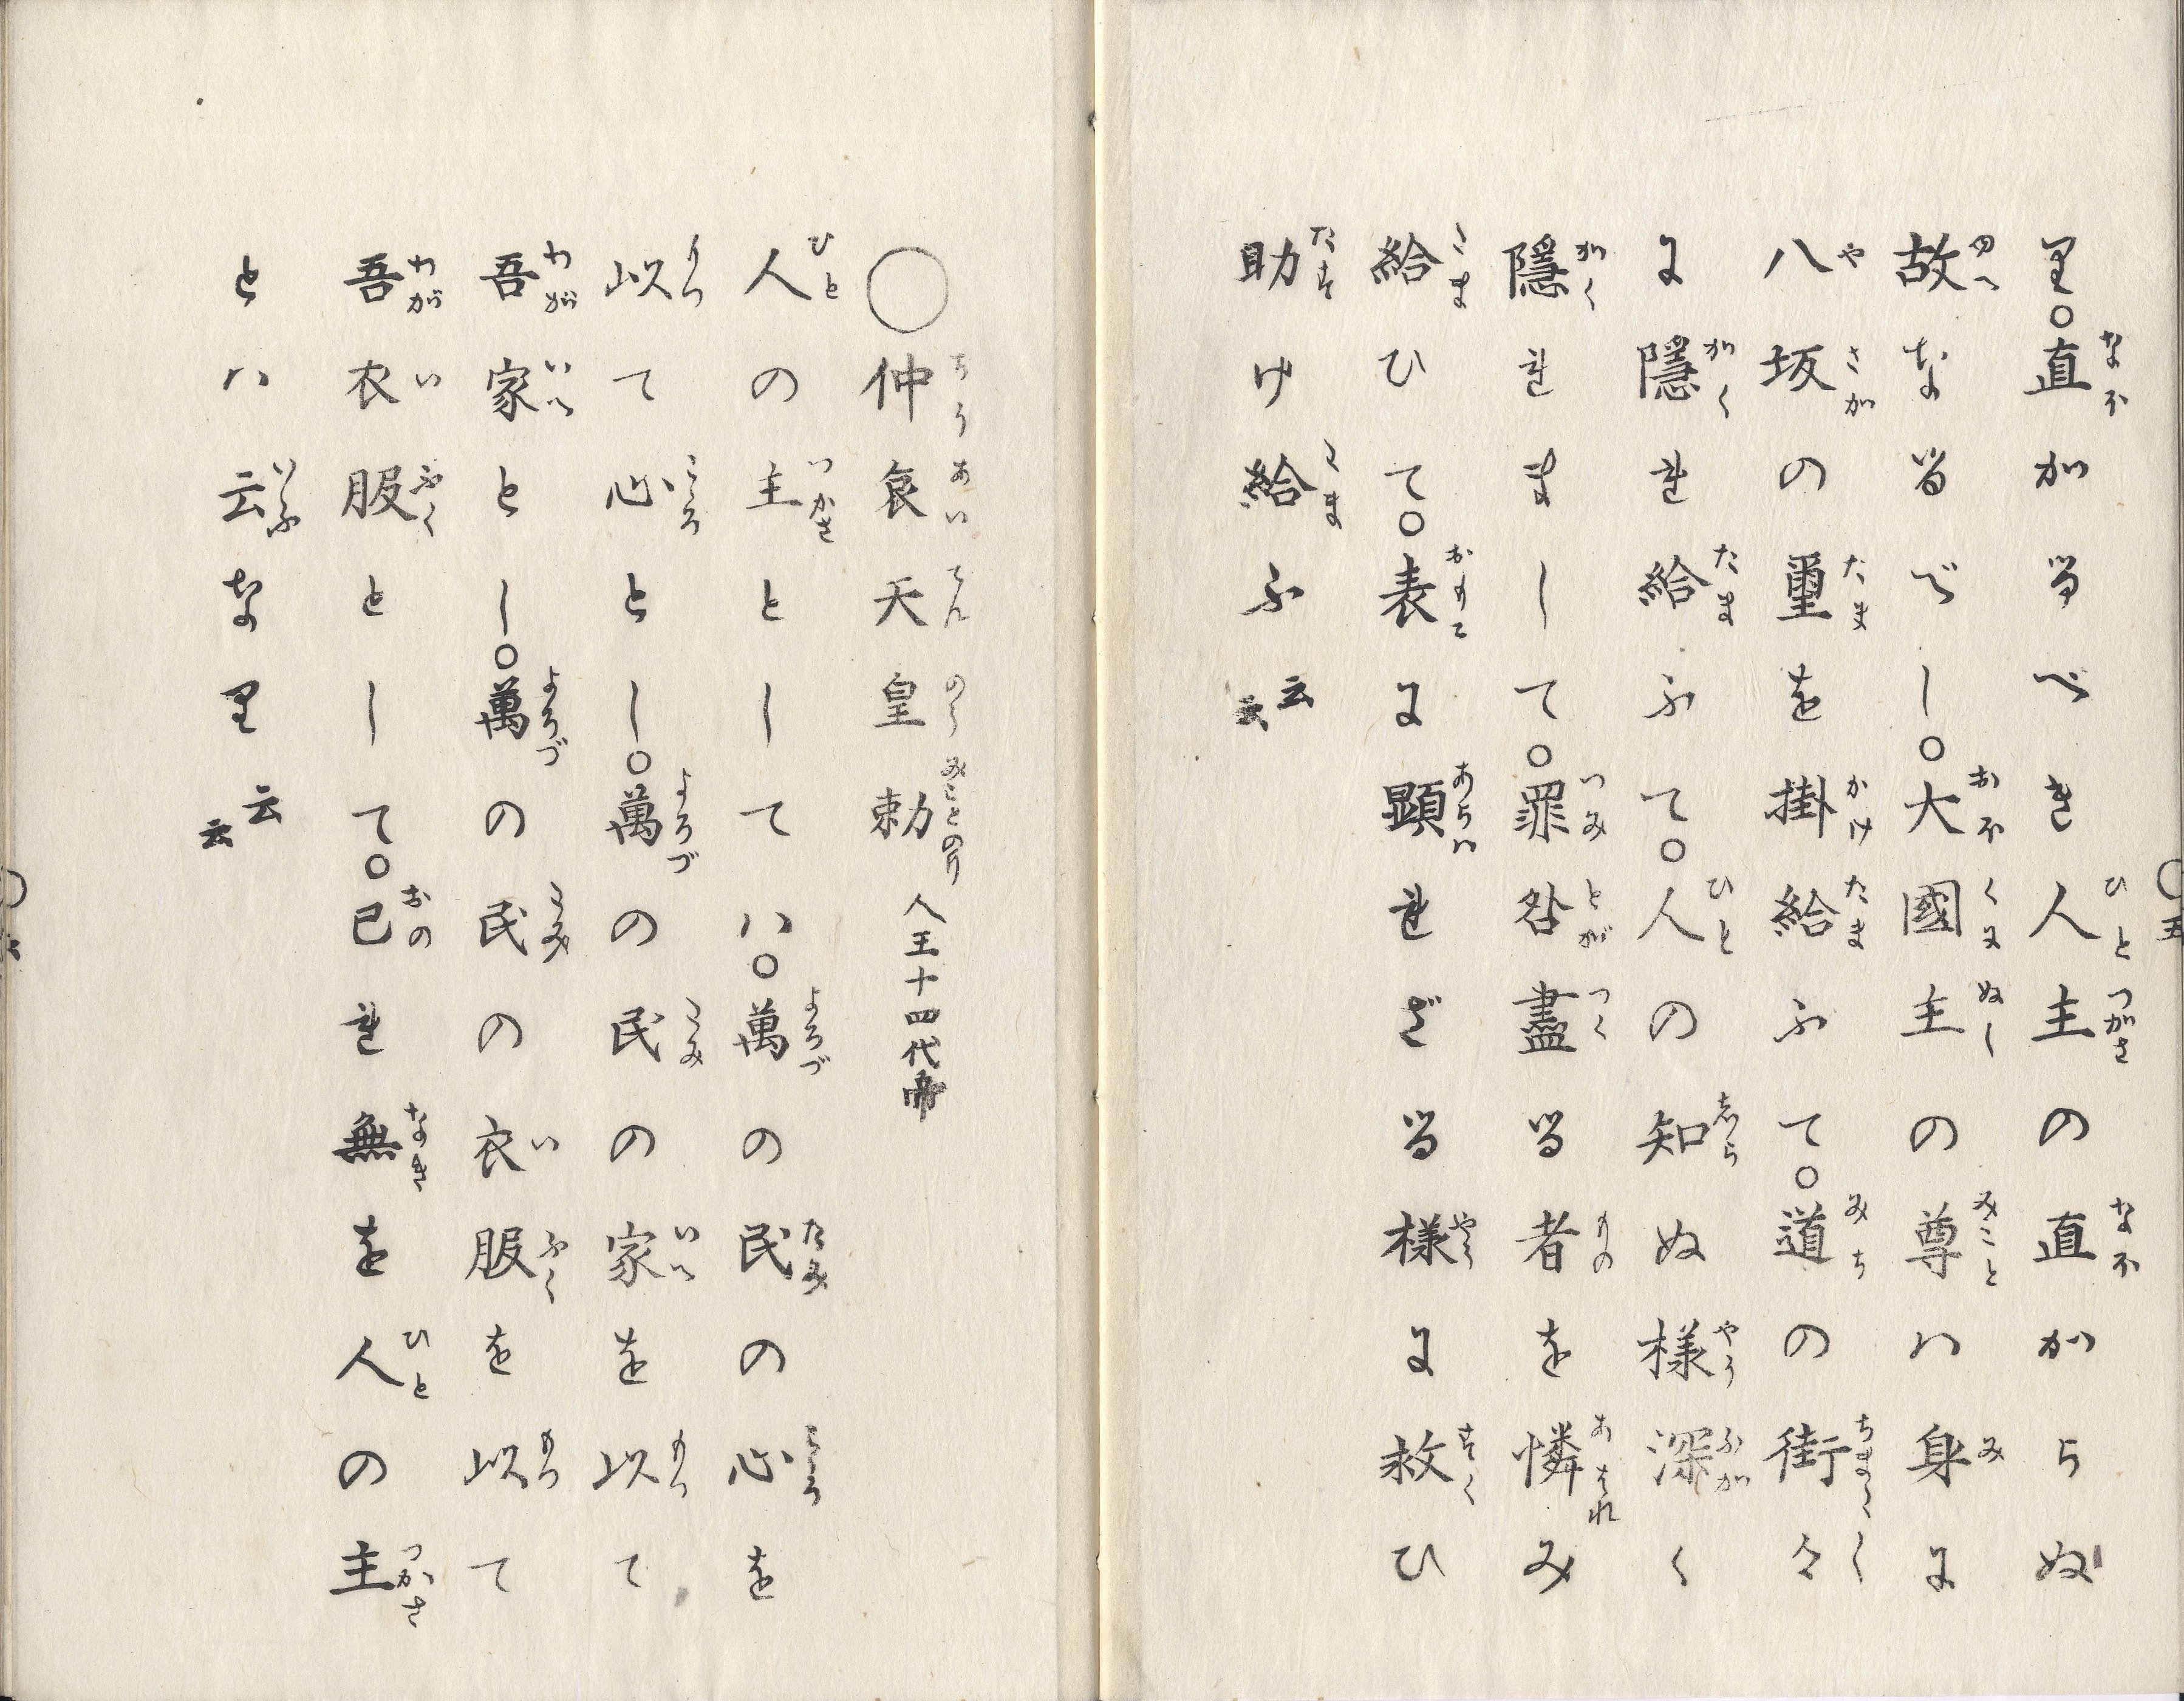 り○直がるべき人主の直からぬ
故なるべし○大國主の尊ハ身に
八坂の璽を掛給ふて○道の街々
に隱れ給ふて○人の知ぬ様深く
隱れまして○罪咎盡る者を憐み
給ひて○表に顕れざる様に救ひ
助け給ふ云云
○五
○仲哀天皇勅 人王十四代帝
人の主としてハ○萬の民の心を
以て心とし○萬の民の家を以て
吾家とし○萬の民の衣服を以て
吾衣服として○己れ無を人の主
とハ云なり云云